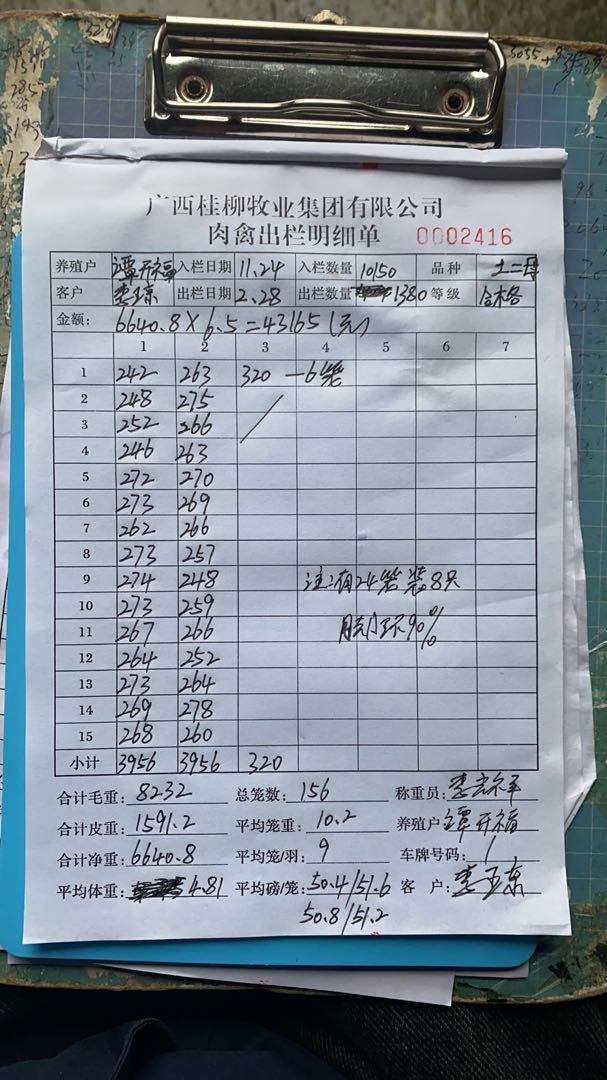 广西桂柳牧业集团有限公司
肉禽出栏明细单 0002416
养殖户 谭开福 入栏日期 11.24 入栏数量 10150 品种 土二
客户 李玉东 出栏日期 2.28 出栏数量 1380 等级 合格
金额: 6640.8×6.5=43165(元)
1 2 3 4 5 6 7
1 242 263 320 一6笼
2 248 275
3 252 266
4 246 263
5 272 270
6 273 269
7 262 266
8 273 257
9 274 248 注:有24笼装8只
10 273 259
11 267 266 脚环90%
12 264 252
13 273 264
14 269 278
15 268 260
小计 3956 3956 320
合计毛重: 8232 总笼数: 156 称重员: 李
合计皮重: 1591.2 平均笼重: 10.2 养殖户 谭开福
合计净重: 6640.8 平均笼/羽: 9 车牌号码: /
平均体重: 4.81 平均磅/笼: 50.4/51.6 客 户: 李玉东
50.8/51.2